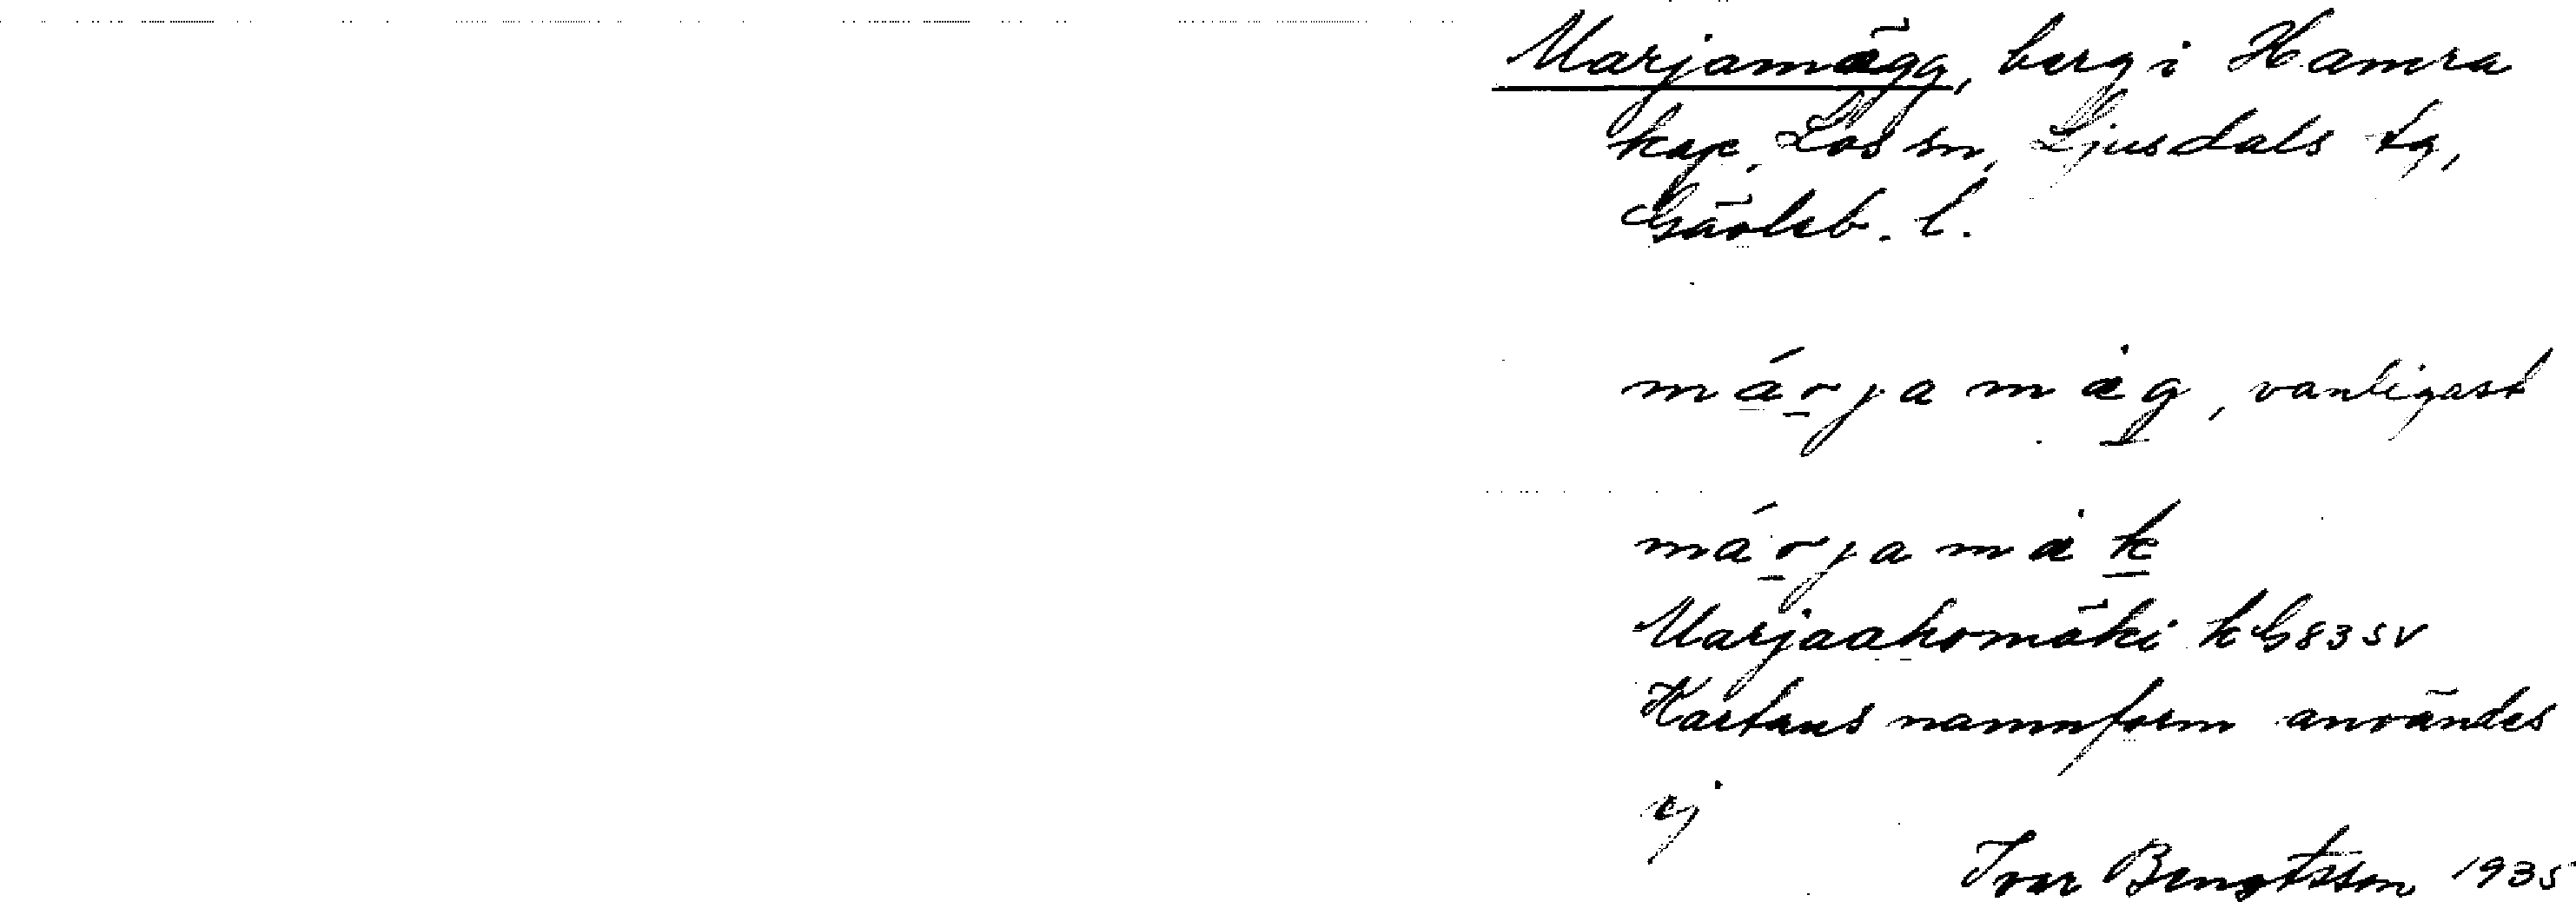 Marjamägg, berg i Hamra
kap, Los sn, Ljusdals tg,
Gävleb. l.
márjamäg, vanligast
márjamäk
Marjaahomäki k G83 SV
Kartans namnform användes
ej
Ivar Bengtsson 1935